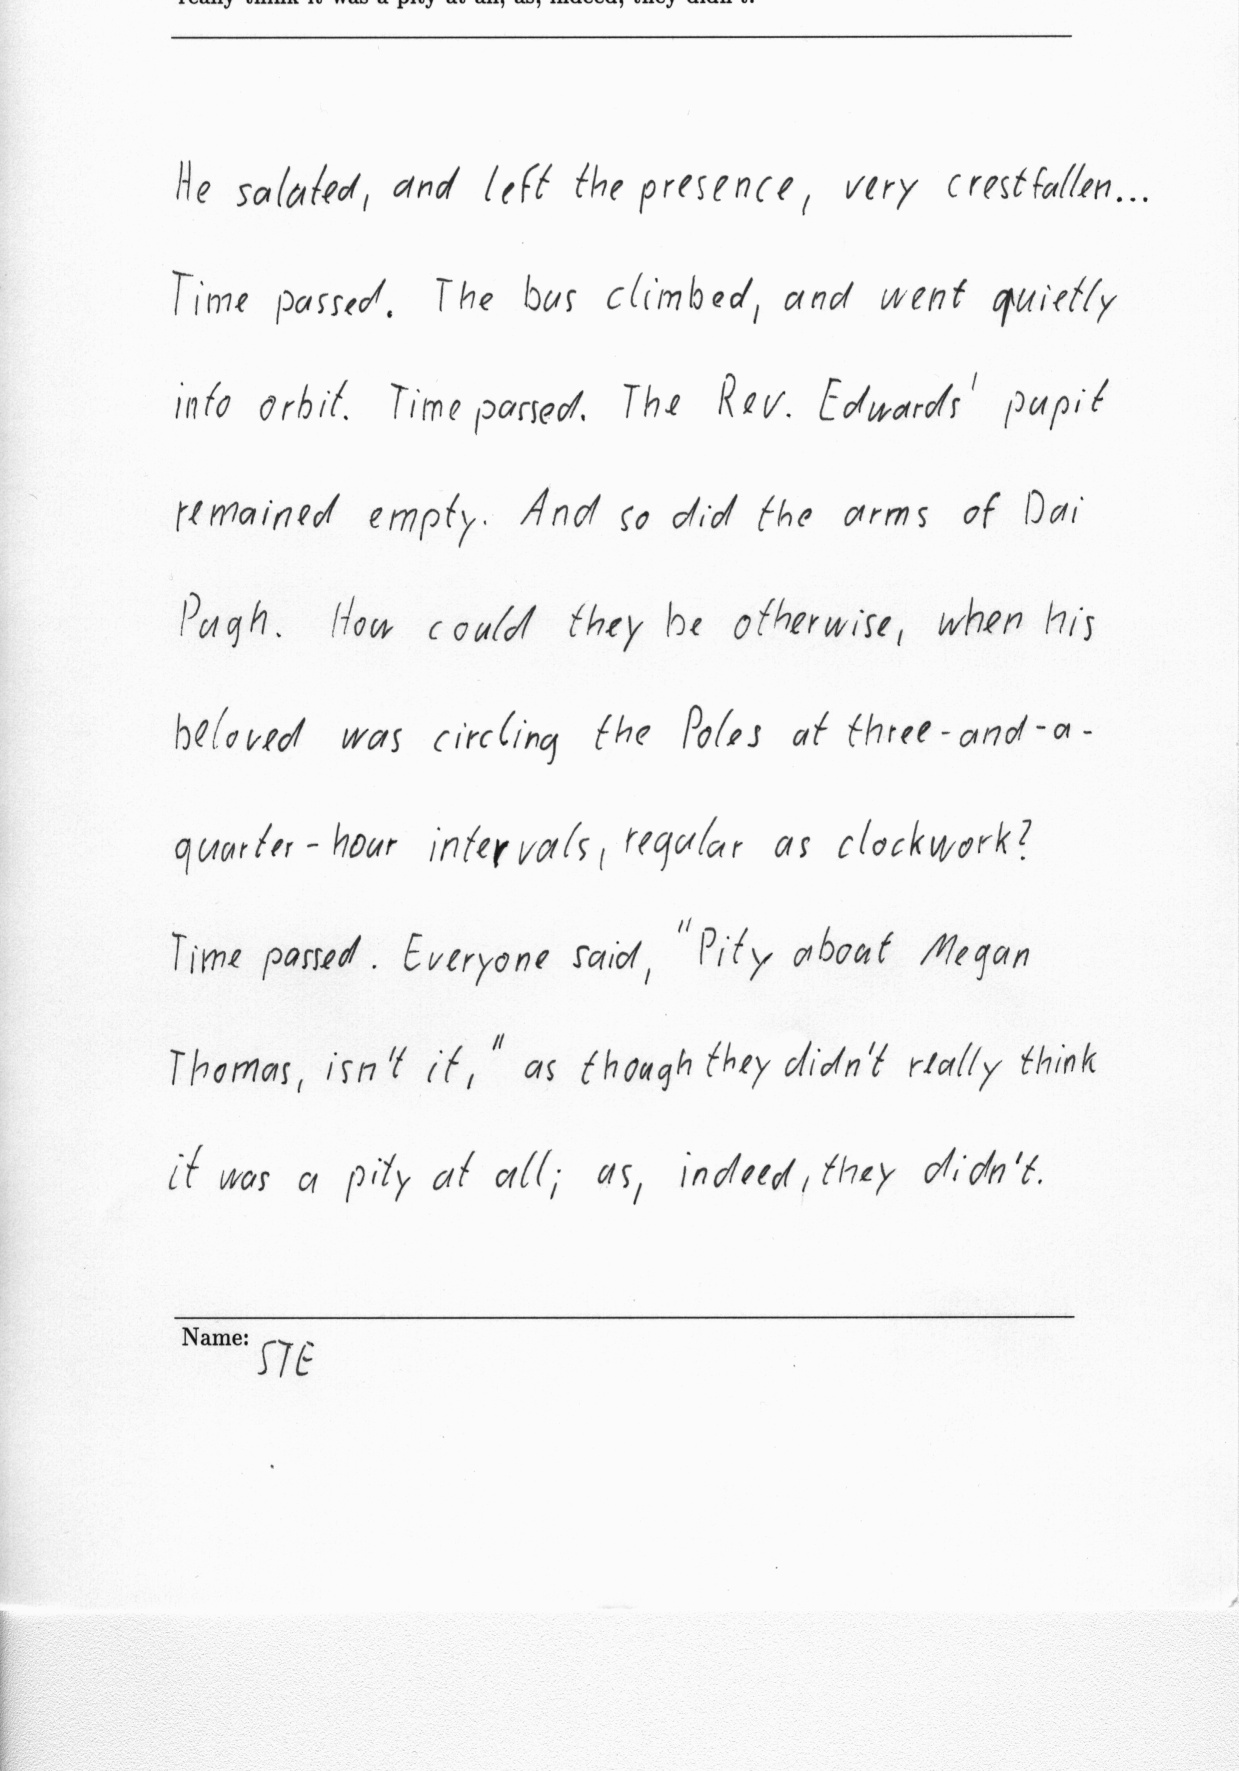 He saluted, and left the presence, very crestfallen...
Time passed. The bus climbed, and went quietly
into orbit. Time passed. The Rev. Edwards' pupit
remained empty. And so did the arms of Dai
Pugh. How could they be otherwise, when his
beloved was circling the Poles at three-and-a-
quarter-hour intervals, regular as clockwork?
Time passed. Everyone said, "Pity about Megan
Thomas, isn't it," as though they didn't really think
it was a pity at all; as, indeed, they didn't.
Name: STE